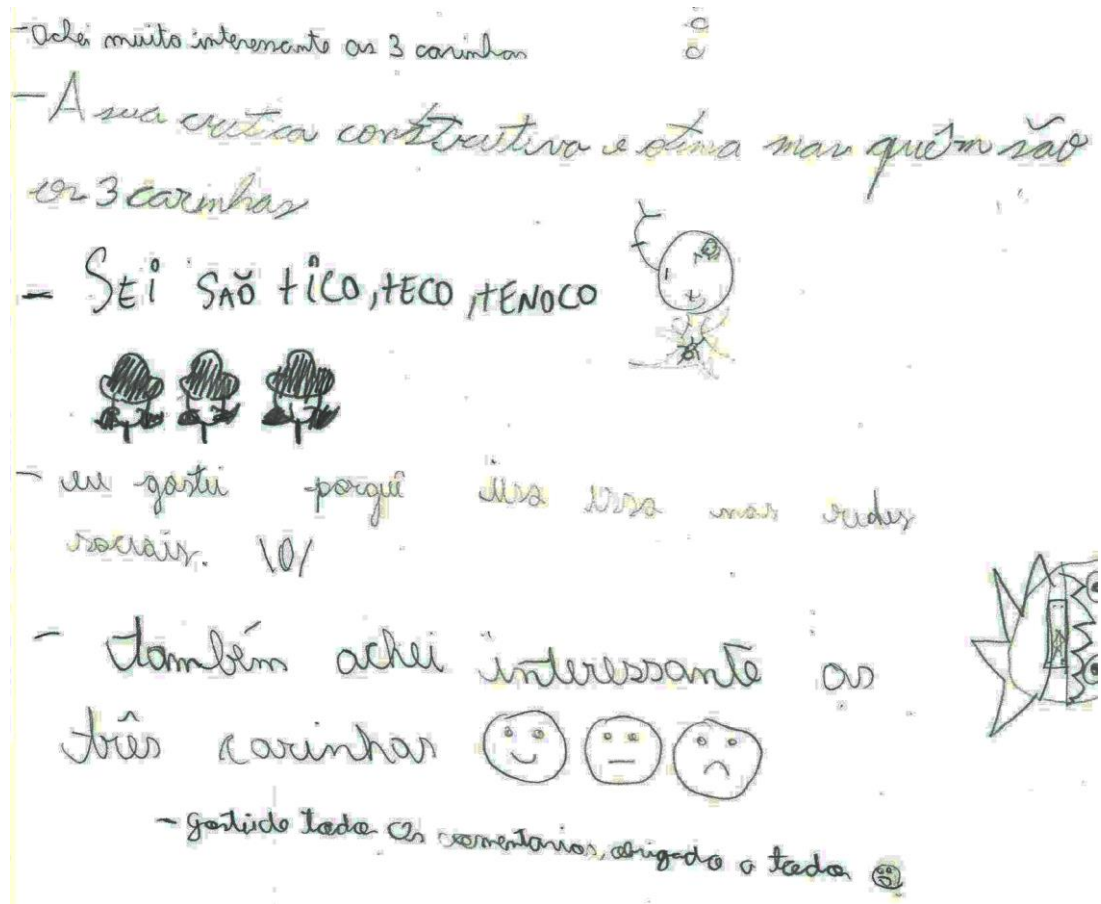 - Achei muito interessante as 3 carinhas
- A sua critica construtiva e otima mas quêm são
os 3 carinhas
- SEi SAÕ tiCO, tECO, tENOCO
- eu gostei porquê usa isso nas redes
sociais. \O/
- também achei interessante as
três carinhas
- gostei de todos os comentarios, obrigado a todos